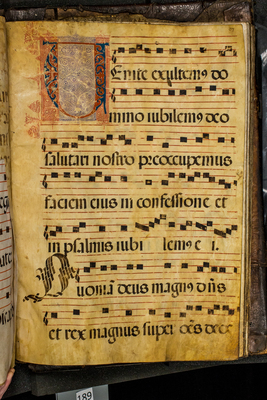 Venite exultemꝰ do
mino iubilemꝰ deo
salutari nostro preoccupemus
faciem eius in confessione et
in psalmis iubi lemꝰ e i.
Quoniā deus magnꝰ dn̄s
et rex magnus super oēs deos
189